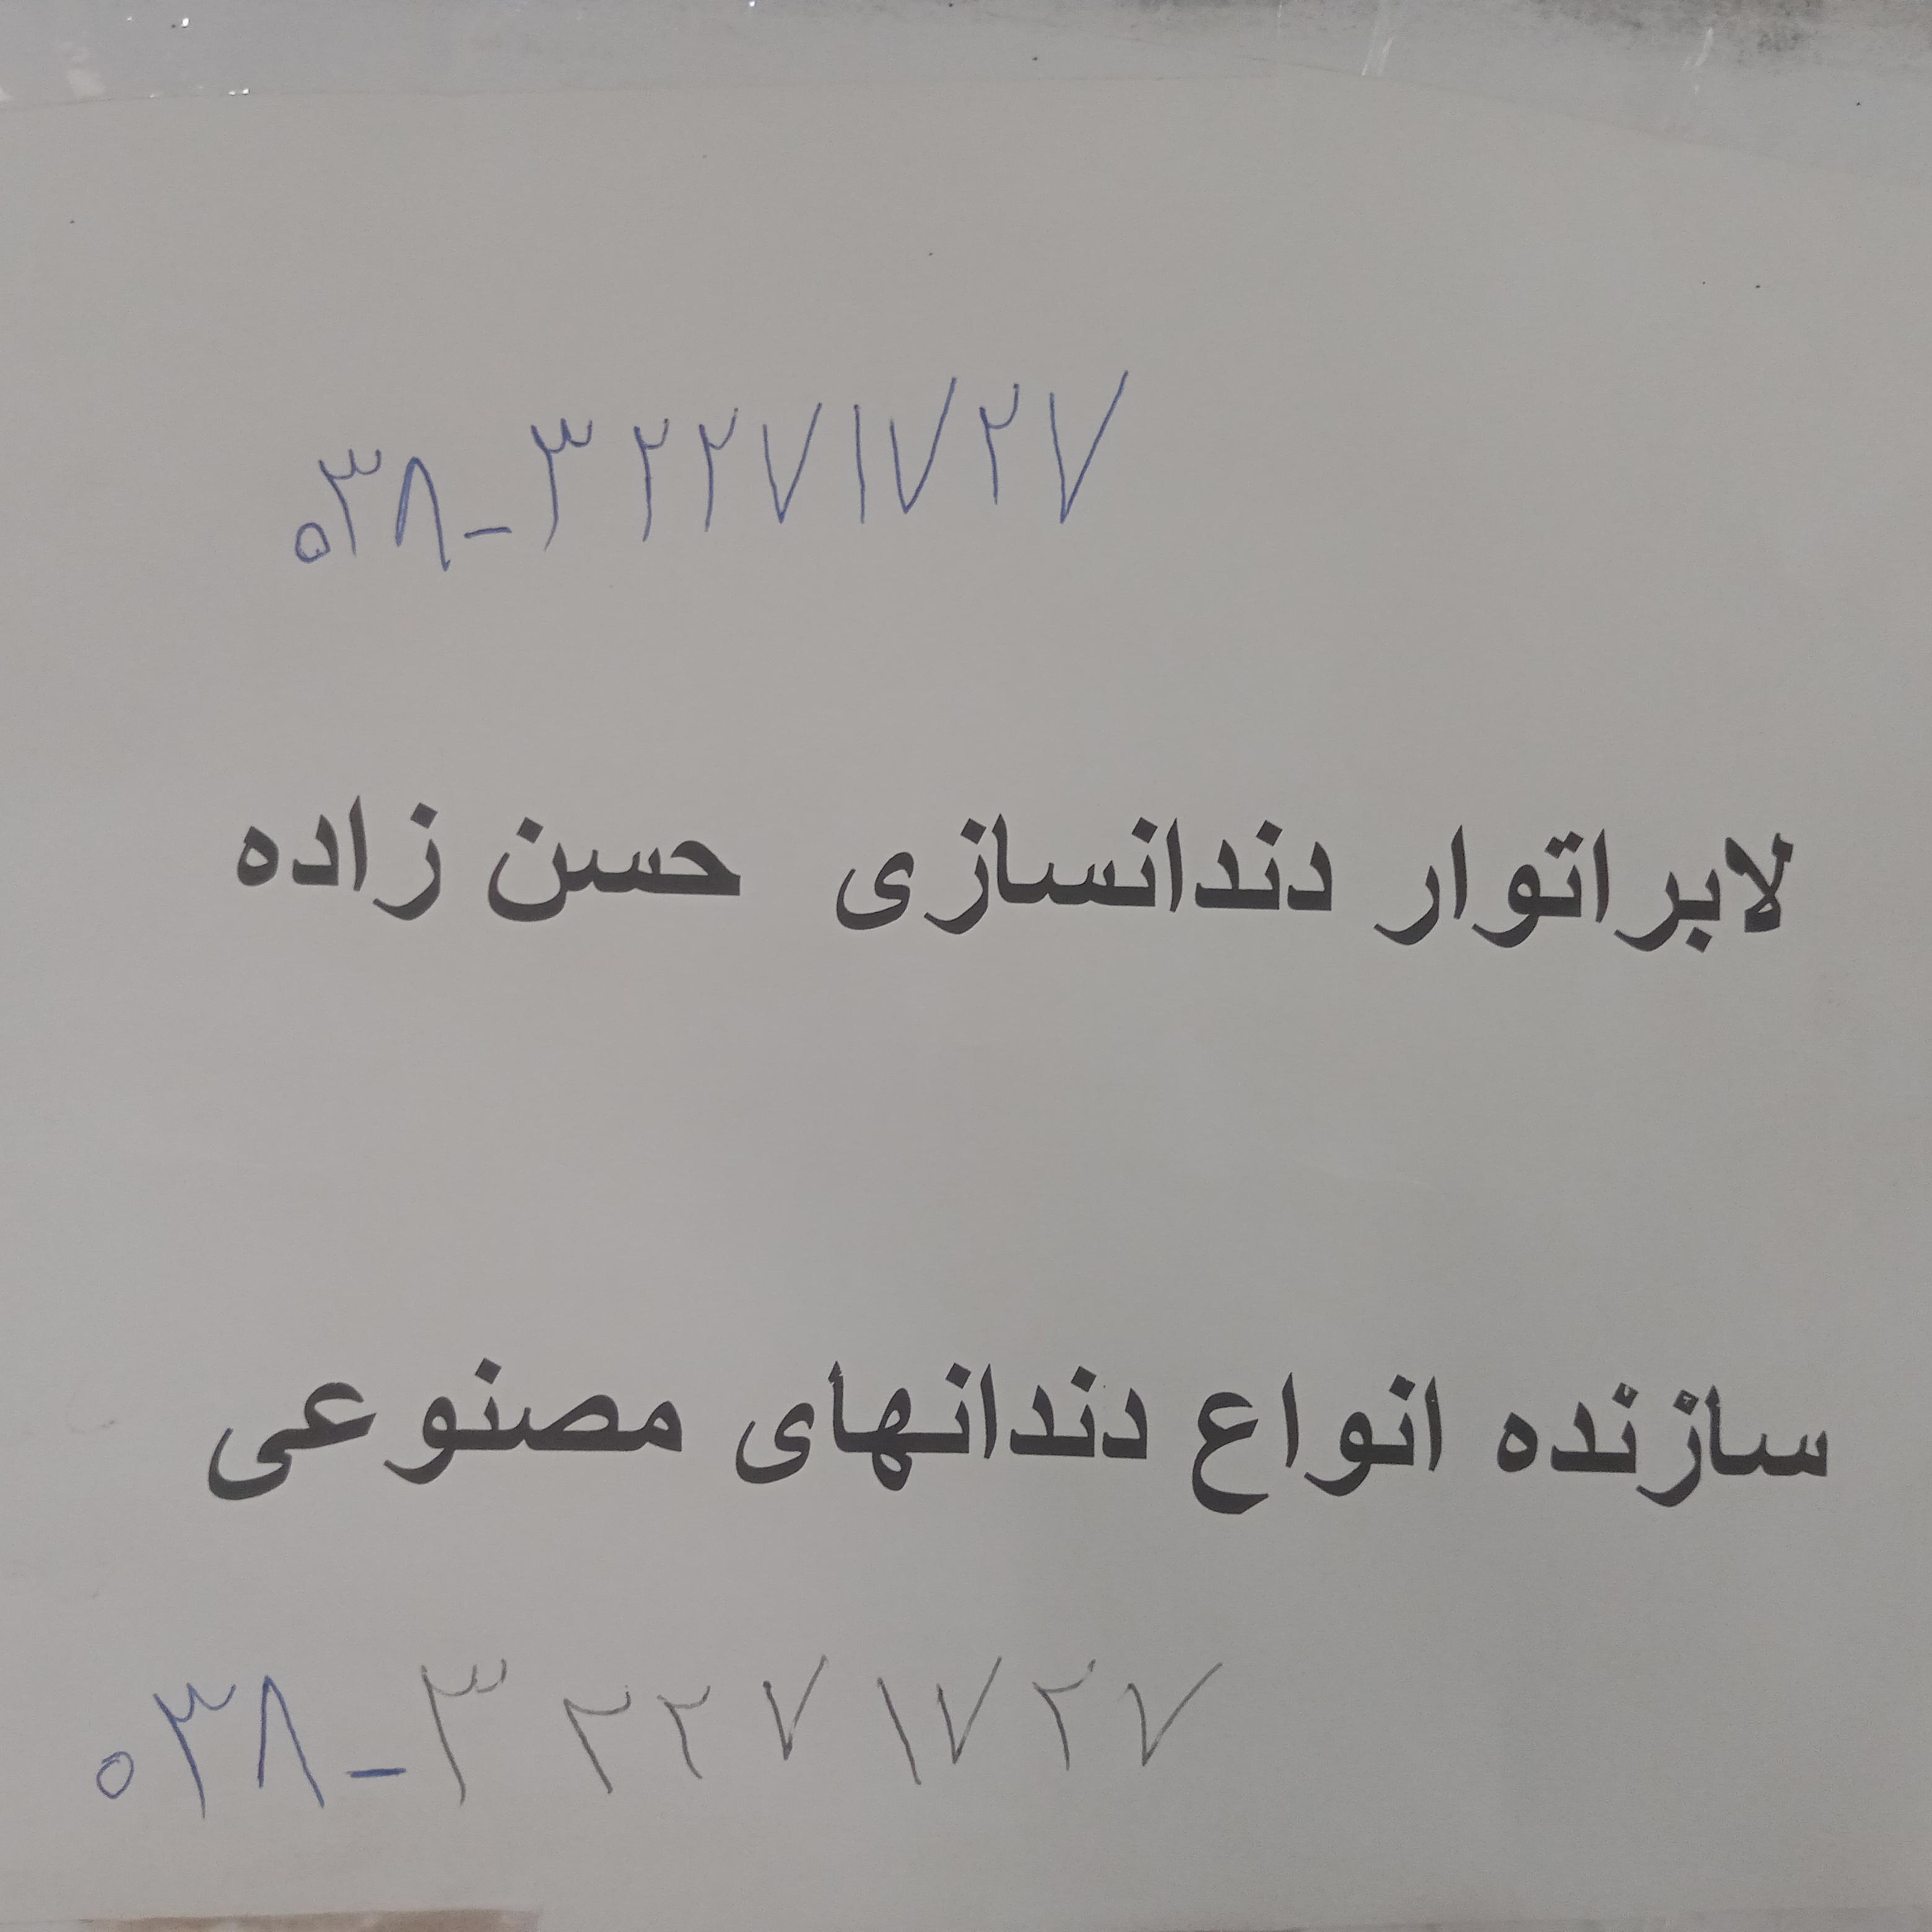 ۰۳۸-۳۲۲۷۱۷۲۷
لابراتوار دندانسازی حسن زاده
سازنده انواع دندانهای مصنوعی
۰۳۸-۳۲۲۷۱۷۲۷